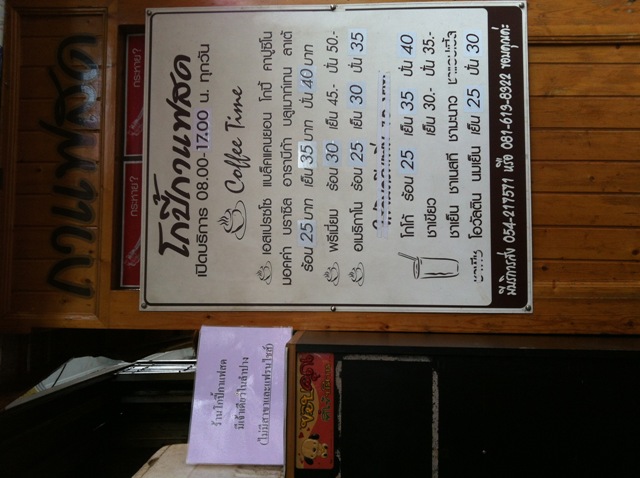 กาแฟสด
กระหาย?
กระหาย?
โกปี๊กาแฟสด
เปิดบริการ 08.00-17.00 น. ทุกวัน
Coffee Time
เอสเปรซโซ่ แบล็คแคนยอน โกปี้ คาปูชิโน
มอคค่า บราซิล อาราบิก้า บลูเมาท์เทน ลาเต้
ร้อน 25 บาท เย็น 35 บาท ปั่น 40 บาท
พรีเมี่ยม ร้อน 30 เย็น 45.- ปั่น 50.-
อเมริกาโน ร้อน 25 เย็น 30 ปั่น 35
โกโก้ ร้อน 25 เย็น 35 ปั่น 40
ชาเขียว เย็น 30.- ปั่น 35.-
ชาเย็น ชาเนสที ชามะนาว
โอวัลติน นมเย็น เย็น 25 ปั่น 30
มีบริการส่ง 054-217571 หรือ 081-619-8922 ขอบคุณค่ะ
ร้านโกปี๊กาแฟสด
มีเจ้าเดียวในลำปาง
(ไม่มีสาขาและแฟรนไชส์)
ขอบคุณ